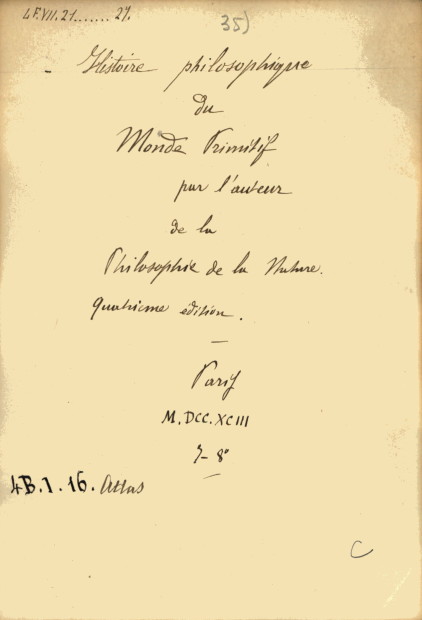 4F.VII.21.......27.
35)
Histoire philosophique
du
Monde Primitif
par l'auteur
de la
Philosophie de la Nature.
Quatrième édition.
Paris
M.DCC.XCIII
7-8°
4B.1.16. Atlas
C